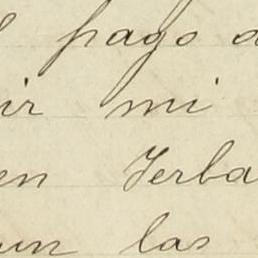 l pago a
ir mi
en Yerba
un las